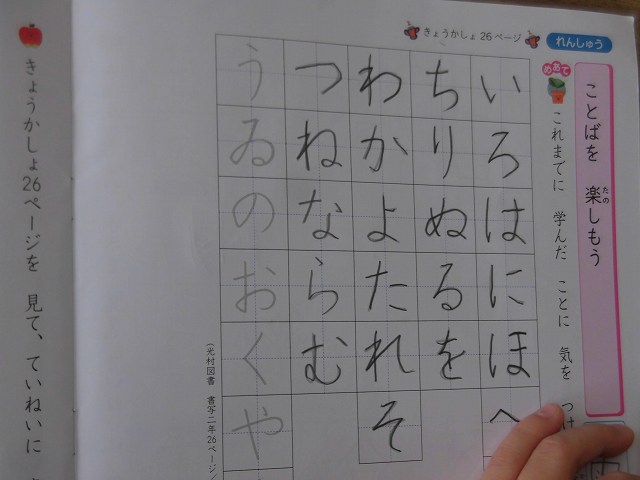 れんしゅう
きょうかしょ 26 ページ
ことばを 楽しもう
たの
めあて
これまでに 学んだ ことに 気を つけ
いろはにほへ
ちりぬるを
わかよたれそ
つねならむ
うゐのおくや
(光村図書 書写二年26ページ
きょうかしょ26ページを 見て、ていねいに